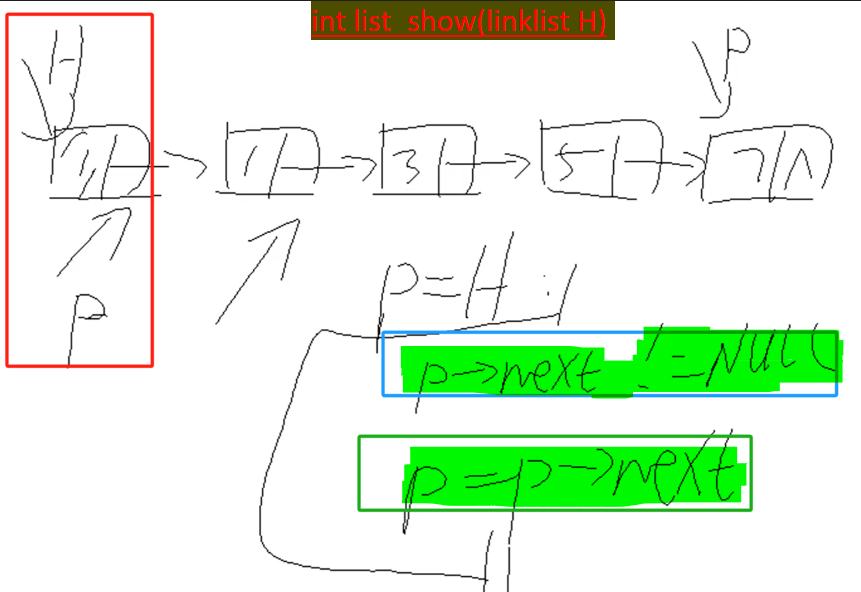 int list_show(linklist H)
H
P
1
3
5
7 ∧
P
p = H ;
p->next != NULL
p = p->next